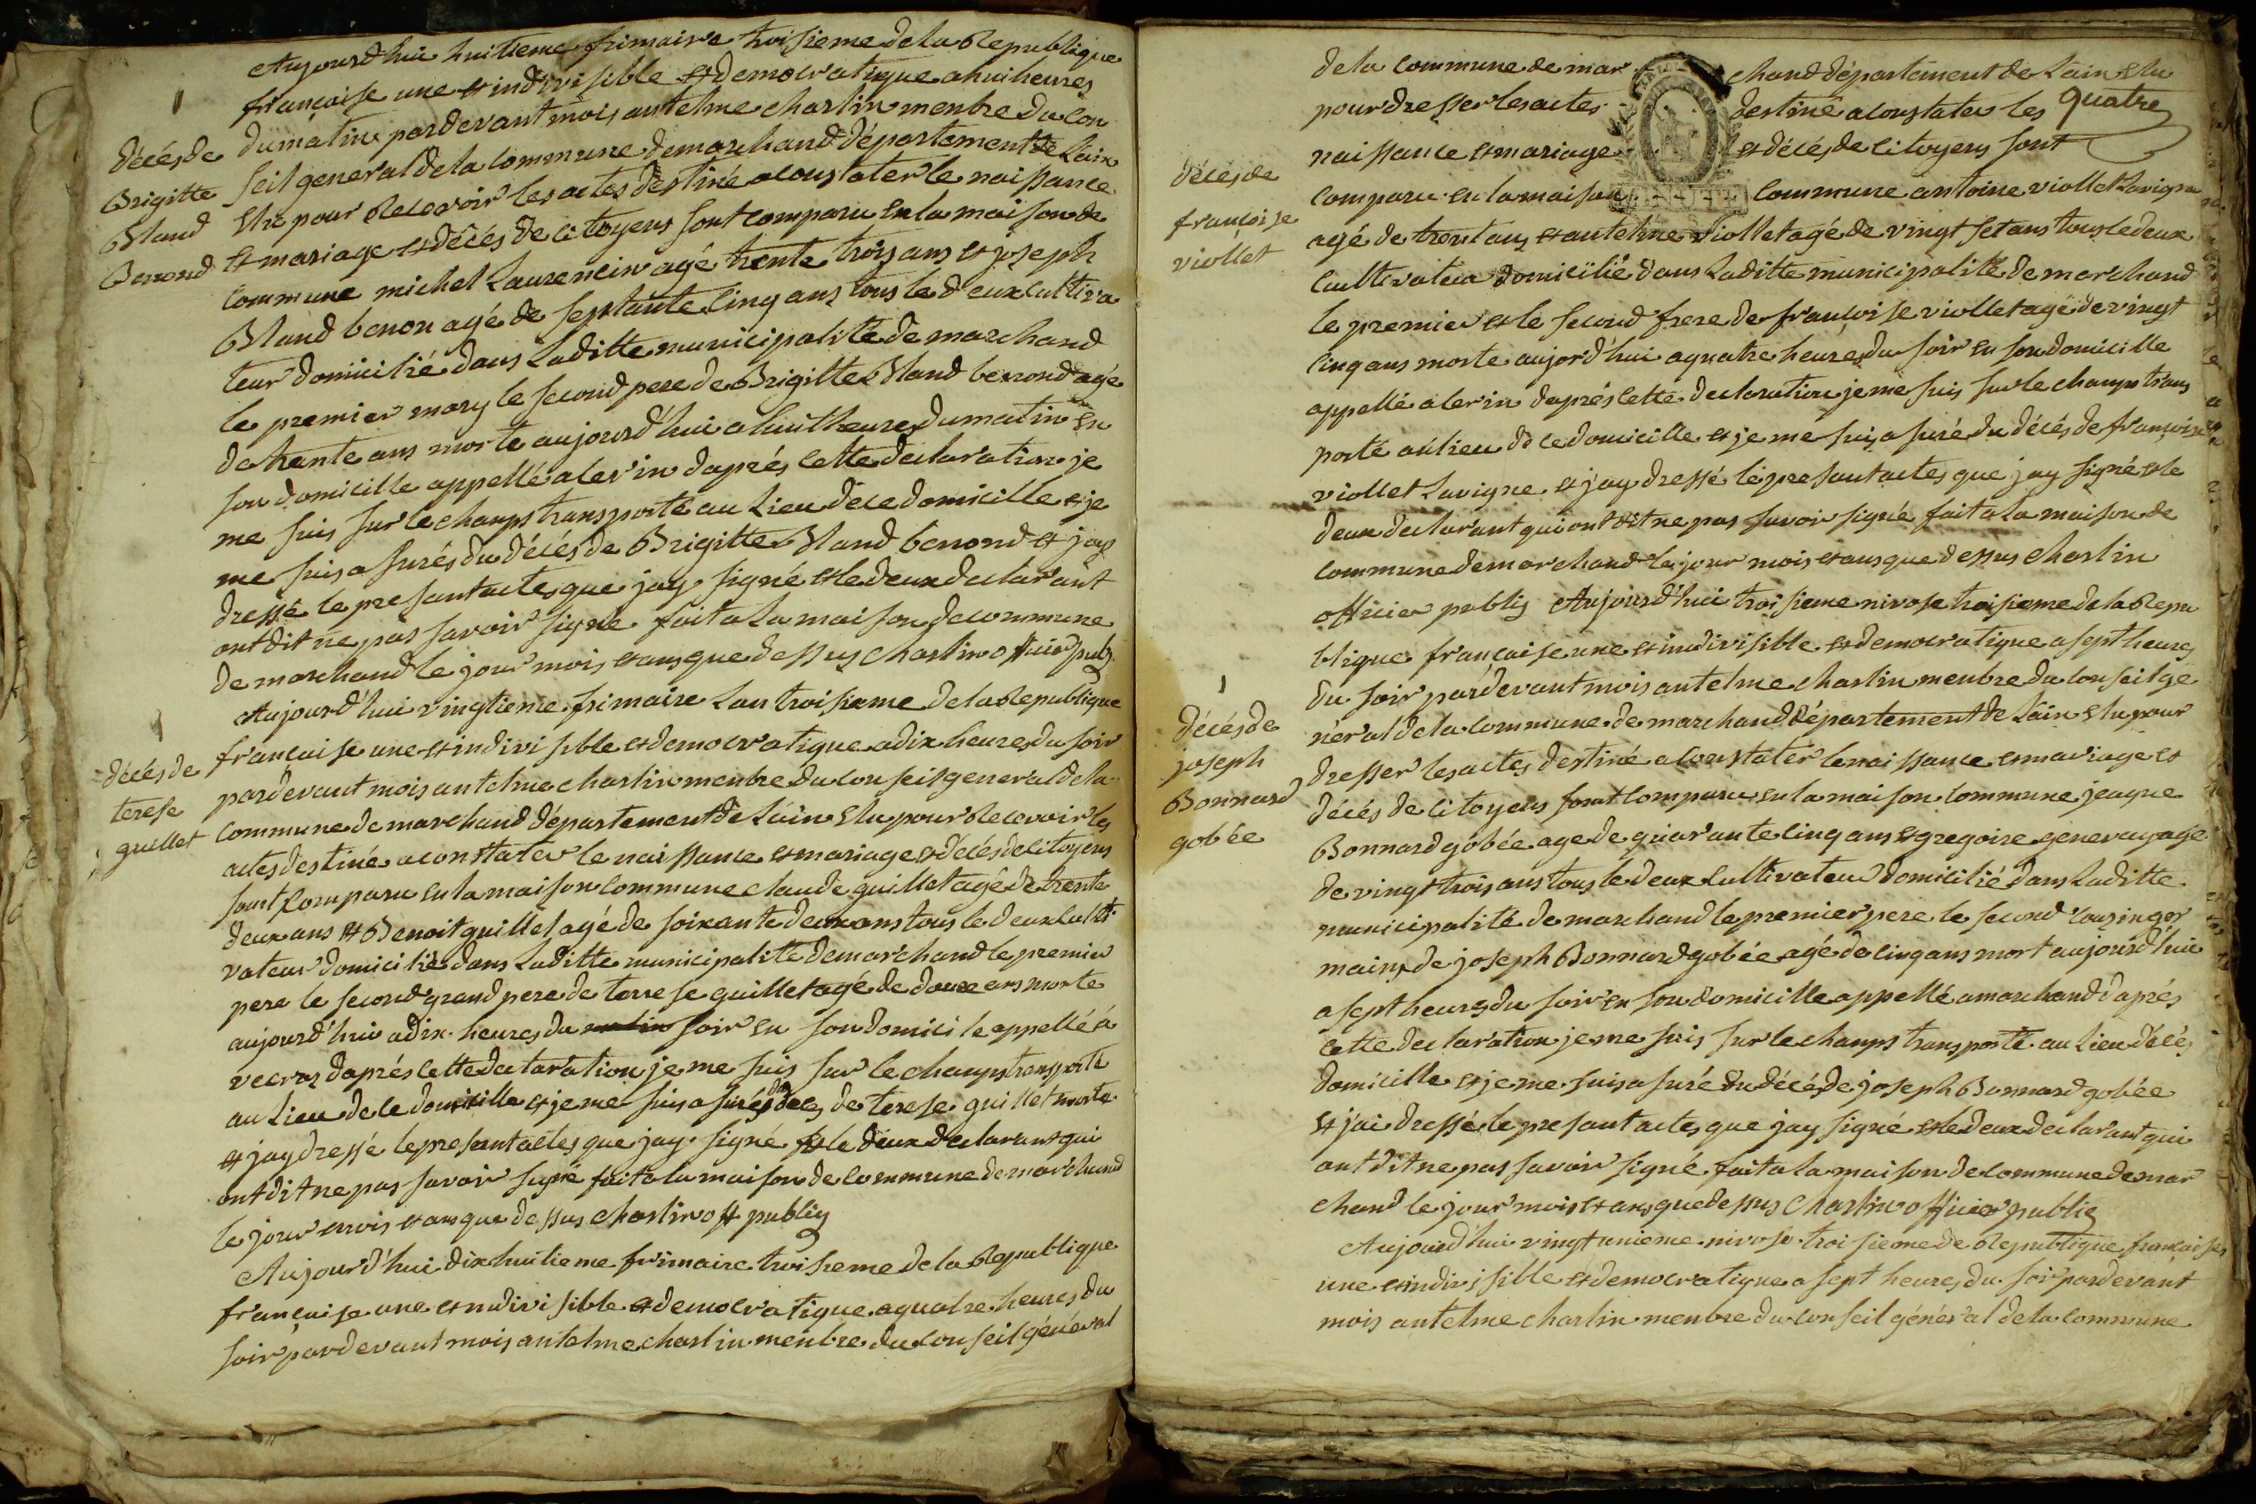 Aujourd'hui huitieme frimaire troisieme de la Republique
française une et indivisible et democratique a hui heures
du matin pardevant mois antelme charlin menbre du con
seil general de la commune de marchand département de Lain
elu pour Recevoir les actes destiné a constater le naissance
et mariage et décés de citoyens sont comparu en la maison de
commune michel Laurencin agé trente trois ans et joseph
Bland benon agé de septante cinq ans tous le deux cultiva
teur domicilié dans Laditte municipalité de marchand
le premier mary le second pere de Brigitte Bland berrond agé
de trente ans morte aujourd'hui a huit heures du matin en
son domicille appellé a lerin daprés cette declaration je
me suis sur le champs transporté au Lieu de ce domicille et je
me suis asurés du décés de Brigitte Bland benond et jay
dressé le presantactes que jay signé et le deux declarant
ont dit ne pas savoir signé fait a La maison de commune
de marchand le jour mois et ans que dessus charlin officier publ
décés de
Brigitte
Bland
Benond
Aujourd'hui vingtieme frimaire Lan troisieme de la Republique
française une et indivisible et democratique a dix heures du soir
pardevant mois antelme charlin menbre du conseil general de la
commune de marchand département de Lain elu pour Recevoir les
actes destiné a constater le naissance et mariage et décés de citoyens
sont comparu en la maison commune claude guillet agé de trente
deux ans et Benoit guillet agé de soixante deux ans tous le deux culti
vateur domicilié dans Laditte municipalité de marchand le premier
pere le second grand pere de terese guillet agé de douxe ans morte
aujourd'hui a dix heures du matin soir en son domicile appellé a
vecroz daprés cette declaration je me suis sur le champs transporté
au Lieu de ce domicille et je me suis asurés du deces de terese guillet morte
et jay dressé le presantactes que jay signé et le deux declarant qui
ont dit ne pas savoir signé fait a la maison de commune de marchand
le jour mois et ans que dessus charlin off publiq
décés de
terese
guillet
Aujourd'hui dixhuitieme frimaire troisieme de la Republique
française une et indivisible et democratique a quatre heures du
soir pardevant mois antelme charlin menbre du conseil général
de la commune de mar chand département de Lain elu
pour dresser les actes destiné a constater les quatre
naissance et mariage et décés de citoyens sont
comparu en la maison commune antoine viollet Lavigne
agé de trent ans et antelme viollet agé de vingt set ans tous le deux
cultivateur domicilié dans Laditte municipalité de marchand
le premier et le second frere de françoise viollet agé de vingt
cinq ans morte aujord'hui a quatre heures du soir en son domicille
appellé a lerin daprés cette declaration je me suis sur le champs trans
porté au lieu de ce domicille et je me suis asuré du décés de françoise
viollet Lavigne et jay dressé le presantactes que jay signé et le
deux declarant qui ont dit ne pas savoir signé fait a La maison de
commune de marchand le jour mois et ans que dessus charlin
officier publiq Aujourd'hui troisieme nivose troisieme de la Repu
décés de
françoise
viollet
blique française une et indivisible et democratique a sept heures
du soir pardevant mois antelme charlin menbre du conseil ge
néral de la commune de marchand département de Lain elu pour
dresser les actes destiné a constater le naissance et mariage et
décés de citoyens sont comparu en la maison commune jeaque
Bonnard gobée age de quarante cinq ans et gregoire generay agé
de vingt trois ans tous le deux cultivateur domicilié dans Laditte
municipalité de marchand le premier pere le second cousin ger
mains de joseph Bonnard gobée agé de cinq ans mort aujourd'hui
a sept heures du soir en son domicille appellé a marchand daprés
cette declaration je me suis sur le champs transporté au Lieu de ces
domicille et je me suis asuré du décés de joseph Bonnard gobée
et j'ai dressé le presantactes que jay signé et le deux declarant qui
ont dit ne pas savoir signé fait a La maison de commune de mar
chand le jour mois et ans que dessus Charlin officier publiq
décés de
joseph
Bonnard
gobée
Aujourd'hui vingt unieme nivose troisieme de Republique française
une et indivisible et democratique a sept heures du soir pardevant
mois antelme charlin menbre du conseil général de la commune